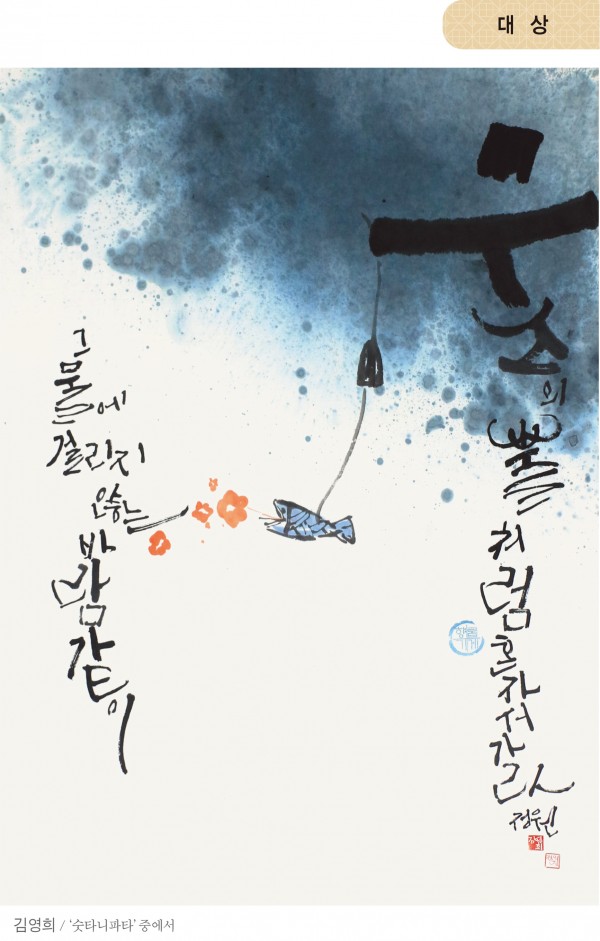 대 상
그물에 걸리지 않는 바람같이
무소의 뿔처럼 혼자서 가라
정원
김영희 / ‘숫타니파타’ 중에서